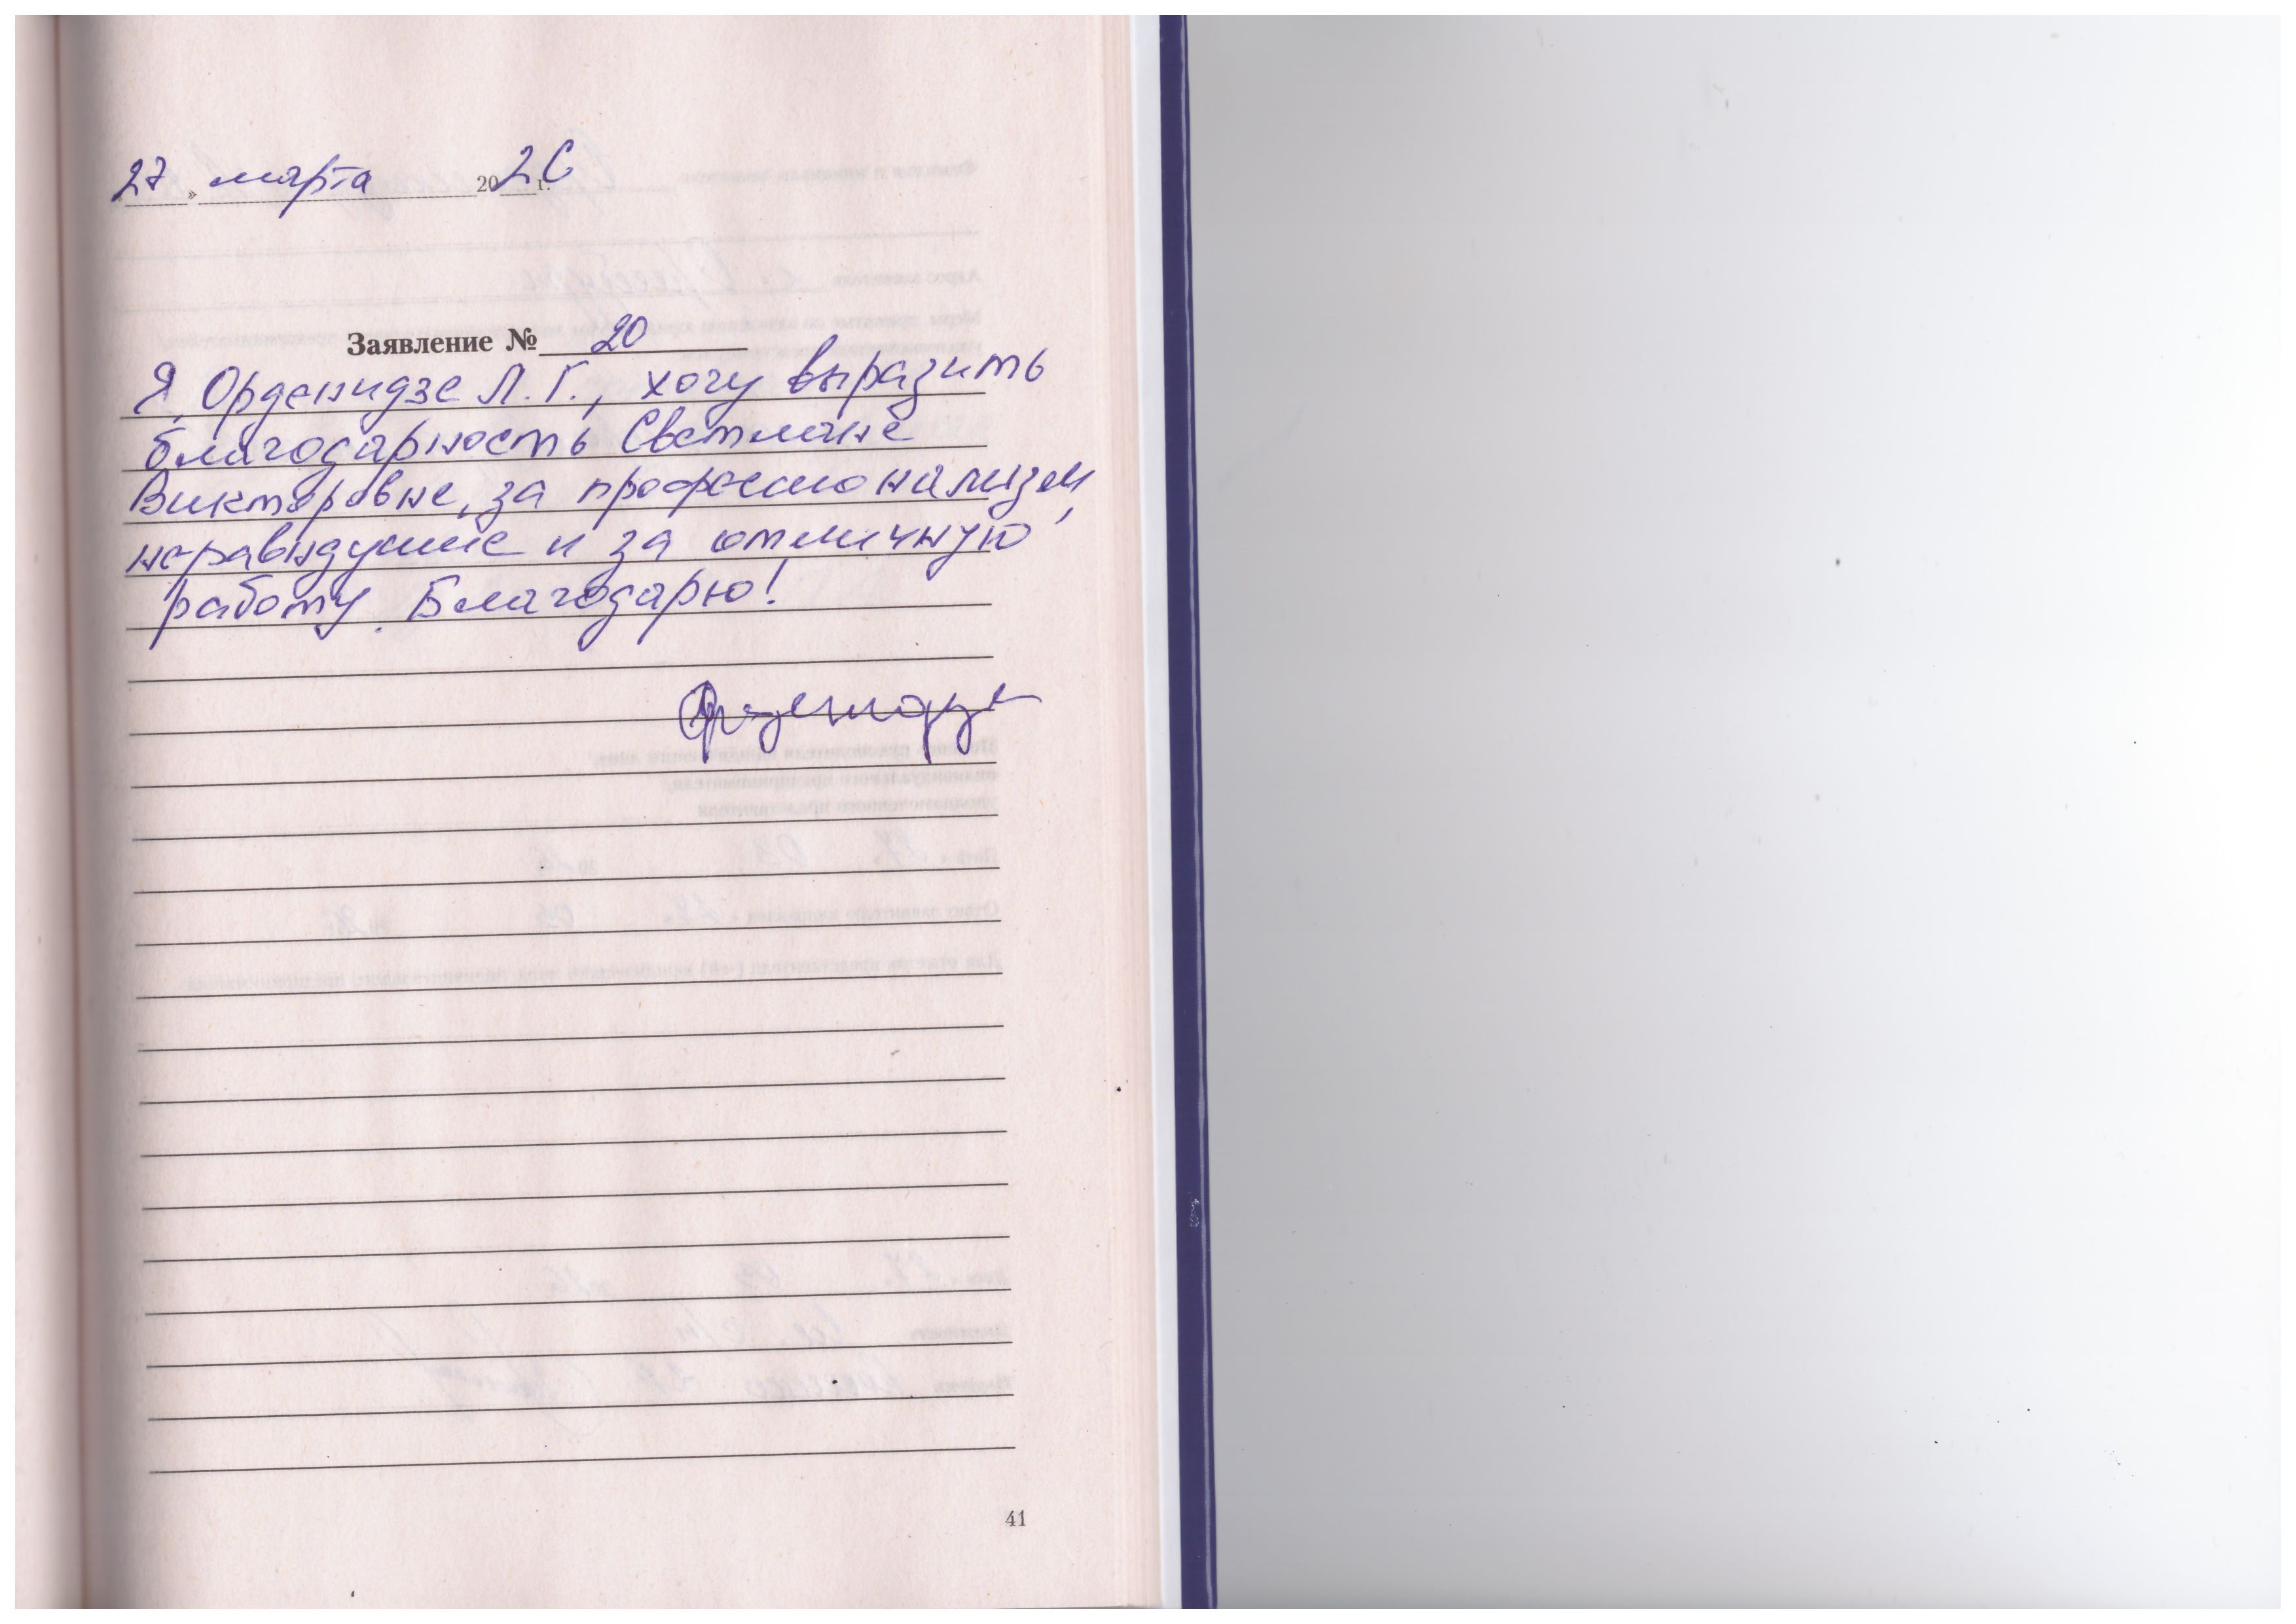 27 » марта 2026 г.
Заявление № 20
Я, Орденидзе Л. Г., хочу выразить
благодарность Светлане
Викторовне, за профессионализм,
неравнодушие и за отличную
работу. Благодарю!
41